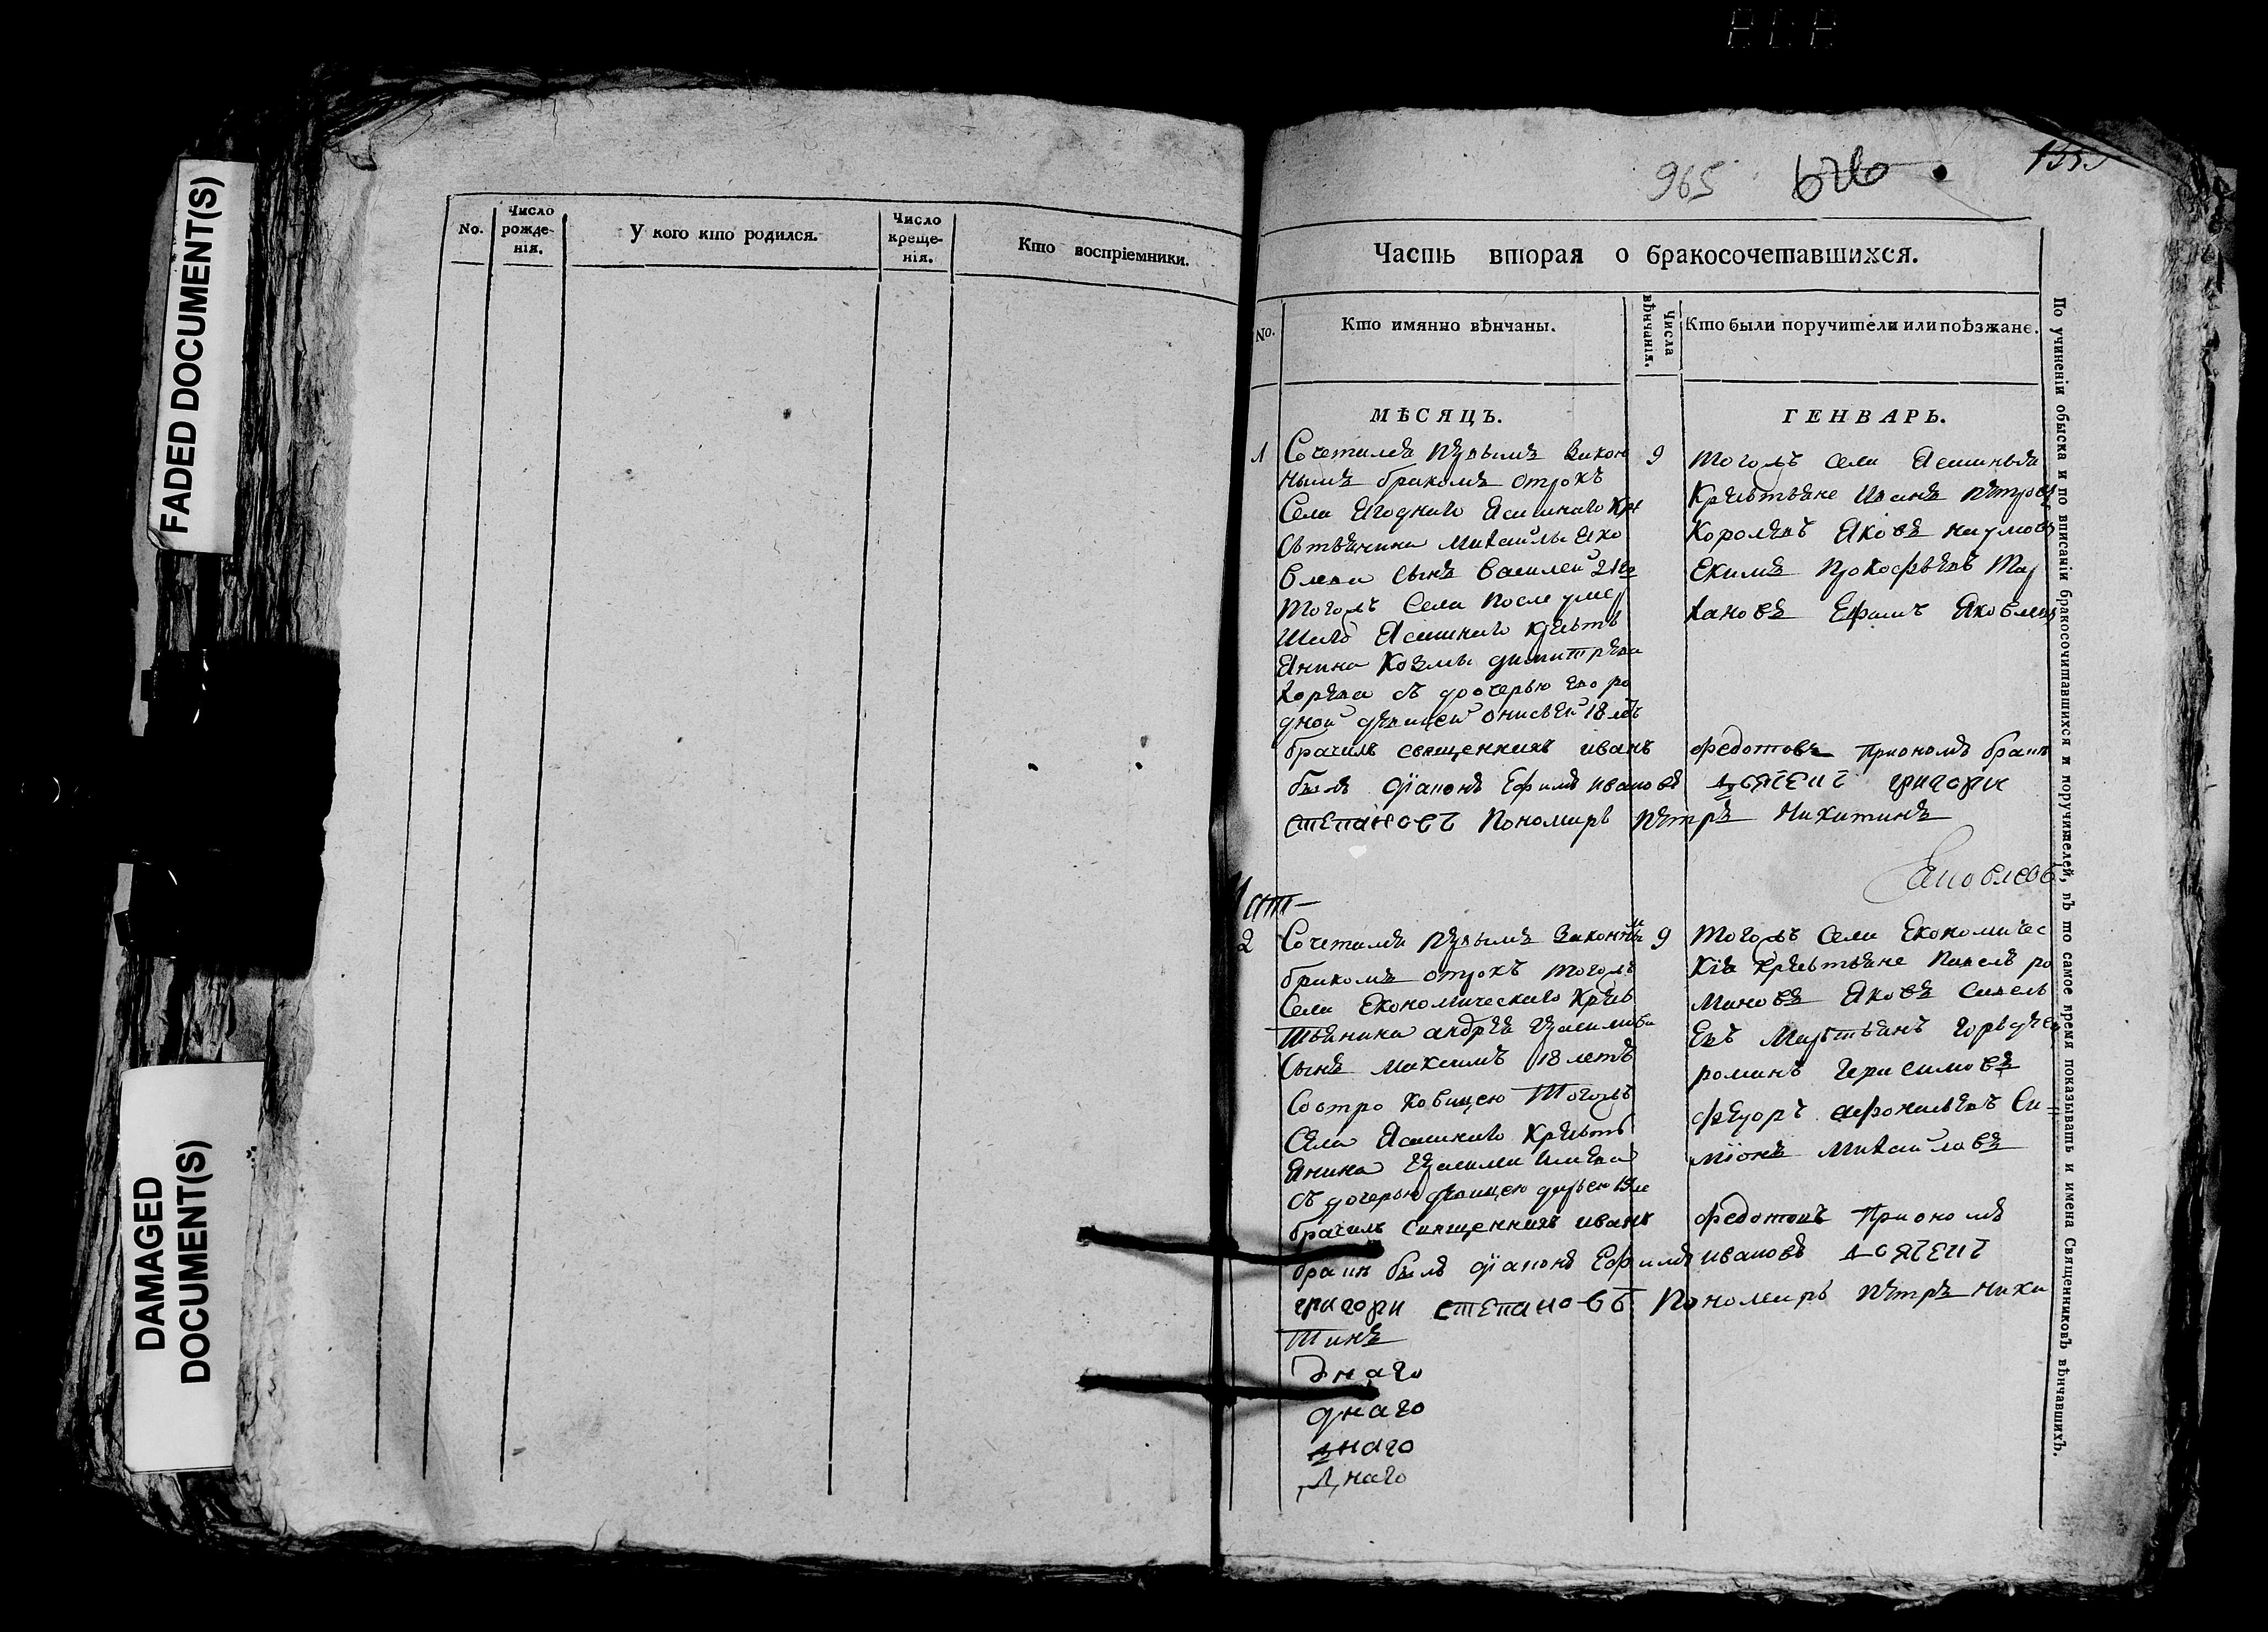 FADED DOCUMENT(S)
DAMAGED
DOCUMENT(S)
No.
Число
рожде-
нія.
У кого кто родился.
Число
креще-
нія.
Кто воспріемники.
965
Часть вторая о бракосочетавшихся.
No.
Кто имянно вѣнчаны.
Числа
вѣнчанія.
Кто были поручители или поѣзжане.
МѢСЯЦЪ.
ГЕНВАРЬ.
1
Сочетился первымъ закон
нымъ бракомъ отрокъ
Села Ягоднаго Ясашнаго Кре
стьянина Михаила Яко
влева сынъ Василей 21го
Тогожъ Села после умер
шаго Ясашнаго кресть
янина Козмы Димитрева
с дочерью ево ро
дной девицей Онисьей 18 летъ
9
Тогожъ села Ясашныя
Крестьяне Иванъ Петровъ
Королевъ Яковъ Наумовъ
Екимъ Прокофьевъ Тар
хановъ Ефимъ Яковлевъ
брачилъ священникъ иванъ федотовъ Приономъ браке
былъ диаконъ Ефимъ ивановъ дьячекъ григори
степановъ Пономарь Петръ Никитинъ
Яковлевъ
2
Сочетился первымъ законны
бракомъ отрокъ тогожъ
Села Економическаго Кресь
тьянина андрея Герасимова
Сынъ Максимъ 18 летъ
Тогожъ
Села Ясашнаго Кресть
янина Герасима
съ дочерью девицею дарьею
9
Тогожъ Села Економичес
кія крестьяне Павелъ ро
мановъ Яковъ Савель
евъ Мартьянъ
романъ Герасимовъ
федоръ афонасьевъ Си-
міонъ Михайловъ
брачилъ Священникъ иванъ федотовъ Приономъ
браке былъ диаконъ Ефимъ ивановъ дьячекъ
григори степановъ Пономарь Петръ Ники
тинъ
днаго
днаго
днаго
днаго
По учиненіи обыска и по вписаніи бракосочитавшихся и поручителей, въ то самое время показывать и имена Священниковъ вѣнчавшихъ.